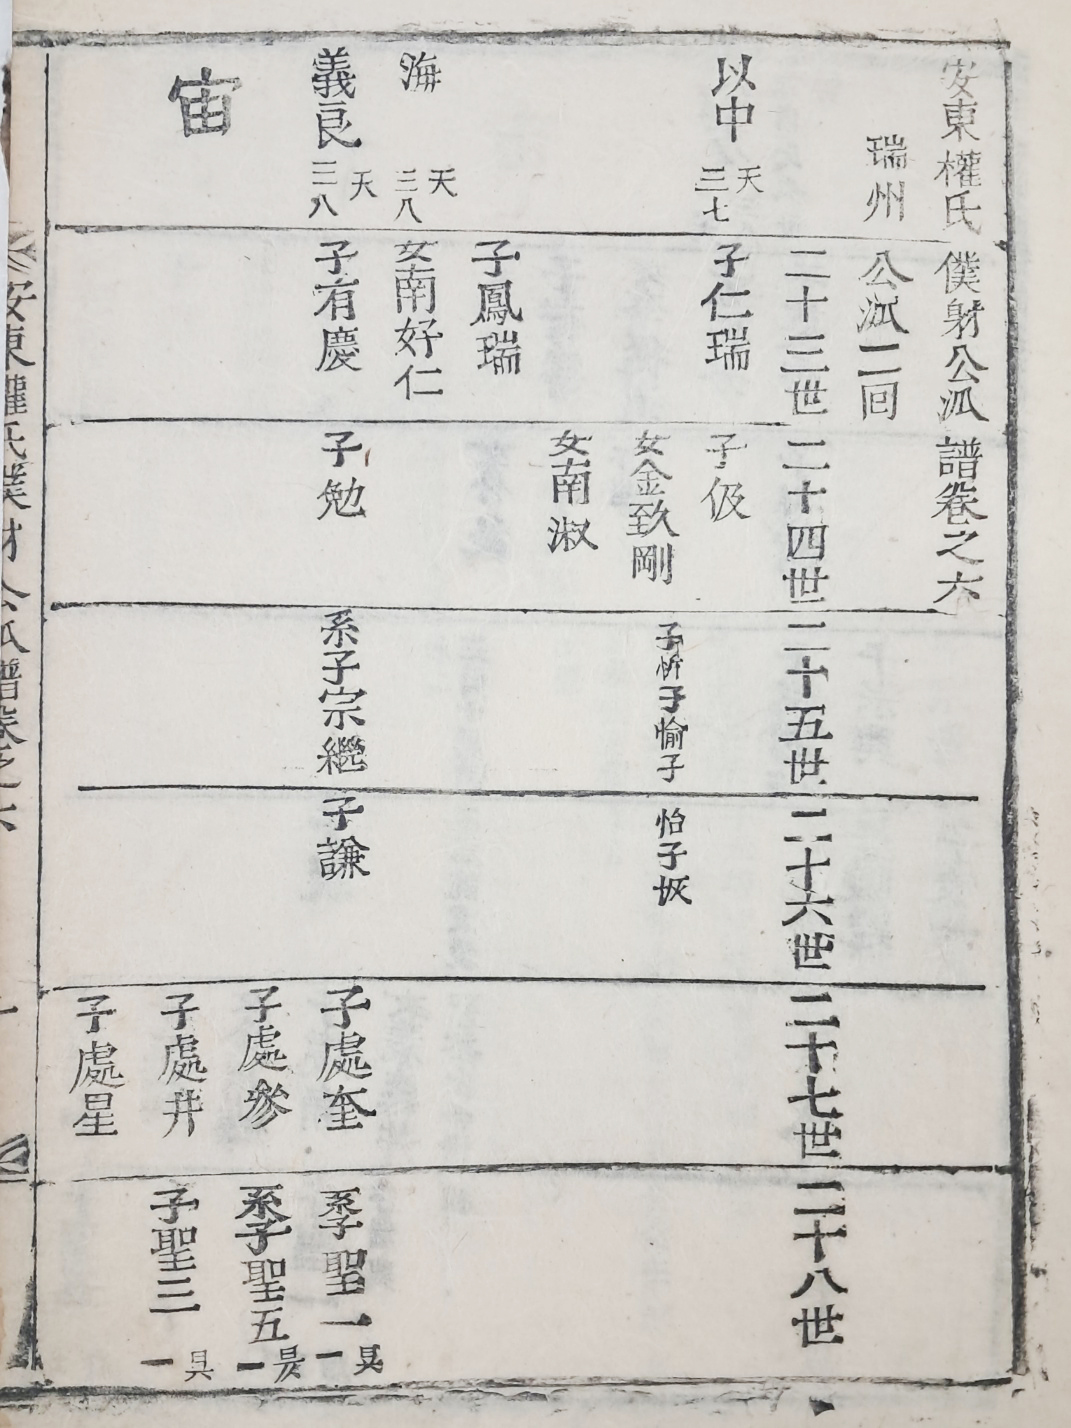 安東權氏僕射公派譜卷之六
瑞州公派二回
二十三世
二十四世
二十五世
二十六世
二十七世
二十八世
以中
天
三七
子仁瑞
子伋
女金致剛
子忻子愉子
怡子恢
女南淑
子鳳瑞
海
天
三八
女南好仁
義良
天
三八
子有慶
子勉
系子宗繼
子謙
子處奎
系子聖一
昃
一
子處參
系子聖五
昃
一
宙
子處井
子聖三
昃
一
子處星
安東權氏僕射公派譜卷之六